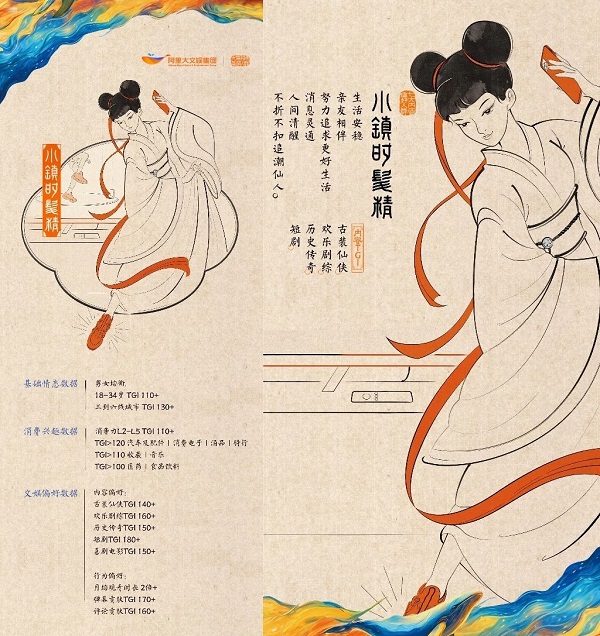 阿里大文娱集团
小鎮时髦精
基础情态数据
男女均衡
18-34岁 TGI 110+
三到六线城市 TGI 130+
消费兴趣数据
消费力L2-L5 TGI 110+
TGI>120 汽车及配件 | 消费电子 |
TGI>110 收藏 | 音乐
TGI>100 医药 | 食品饮料
文娱偏好数据
内容偏好:
古装仙侠TGI 140+
欢乐剧综TGI 160+
历史传奇TGI 150+
短剧TGI 180+
喜剧电影TGI 150+
行为偏好:
月均观看时长 2倍+
弹幕贡献TGI 170+
评论贡献TGI 160+
小鎮时髦精
生活安稳
亲友相伴
努力追求更好生活
消息灵通
人间清醒
不折不扣追潮仙人。
内容TGI
古装仙侠
欢乐剧综
历史传奇
短剧